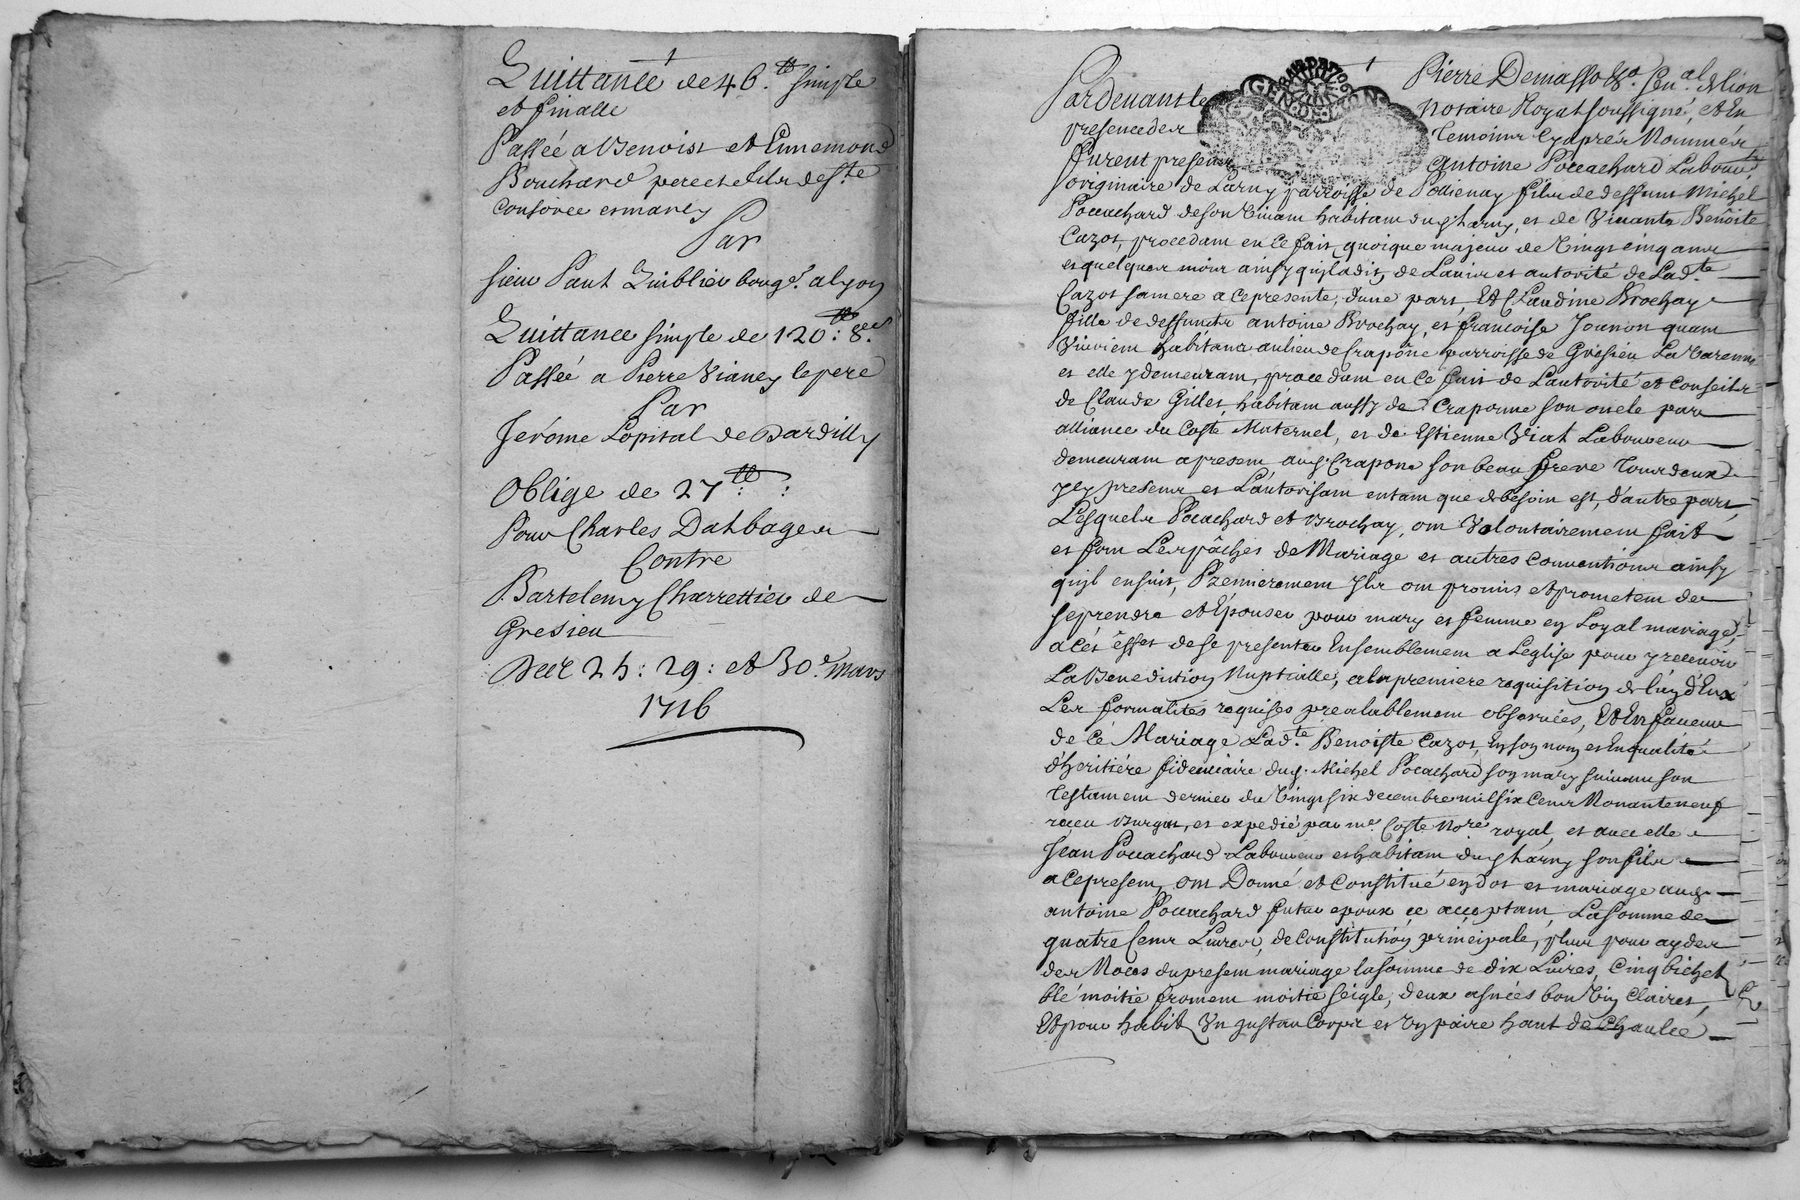 Quittance de 46.tt simple
et finalle
Passée a Benoist et Ennemond
Bouchard pere et fils de s.te
Consorce et marcy
Par
sieur Paul Guiblier bourg.s a lyon
Quittance simple de 120tt: 8.s
Passée a Pierre Vianey le pere
Par
Jerôme Lopital de Dardilly
Oblige de 27.tt :
Pour Charles Dalbage
Contre
Bartelemy Charrettier de
Gresieu
Du 25: 29: et 30.e mars
1716
Pardevant le Pierre Demasso &.a Sen.al de Lion
notaire Royal soussigné, et En
presence des Temoins Cy aprés Nommés
furent presens Antoine Pocachard Labour.r
originaire de Larny parroisse de Pollienay fils de deffunt Michel
Pocachard de son vivant habitant du Lharny, et de Vivante Benoiste
Cazot, procedant en ce fait, quoique majeur de vingt cinq ans
et quelques mois ainsy qu'il a dit, de L'avis et autorité de Lad.te
Cazot sa mere a ce presente, d'une part, Et Claudine Brochay
fille de deffuncts antoine Brochay, et francoise Jounon quand
Vivoient habitans au lieu de Crapône parroisse de Gresieu La Varenne
et elle y demeurant, procedant en ce fait de L'autorité et conseil
de Claude Gillet, habitant aussy de Craponne son oncle par
alliance du Costé Maternel, et de Estienne Viat Laboureur
demeurant a present aud. Crapone son beau frere tous deux
Icy presens et L'autorisant entant que de besoin est, d'autre part,
Lesquels Pocachard et Brochay, ont Volontairement fait
et font Les pâches de Mariage et autres conventions ainsy
qu'jl ensuit, Premierement Jls ont promis et prometent de
se prendre et Épouser pour mary et femme en Loyal mariage,
a cés éffet de se presenter Ensemblement a L'eglise pour y recevoir
La Benediction Nuptialle, a la premiere requisition de L'un d'Eux
Les formalités requises prealablement observées, Et En faveur
de ce Mariage Lad.te Benoiste Cazot, En son nom et En qualité
d'heritiére fideicciaire dud. Michel Pocachard son mary suivant son
Testament dernier du Vingt six decembre mil six Cens Nonante neuf
recu et expedié par m.e Coste No.re royal, et avec elle
Jean Pocachard Laboureur et habitant dud Lharny son fils
a ce present, ont Donné et Constitué en dot et mariage aud.
antoine Pocachard futur epoux ce acceptant, La somme de
quatre Cens Livres, de constitution principale, plus pour ayder
des Noces du present mariage la somme de dix Livres, Cinq bichet
blé moitie froment moitie seigle, deux asnées bon Vin Clairet,
Et pour habit Un justau Corps et Un paire haut de Chausse